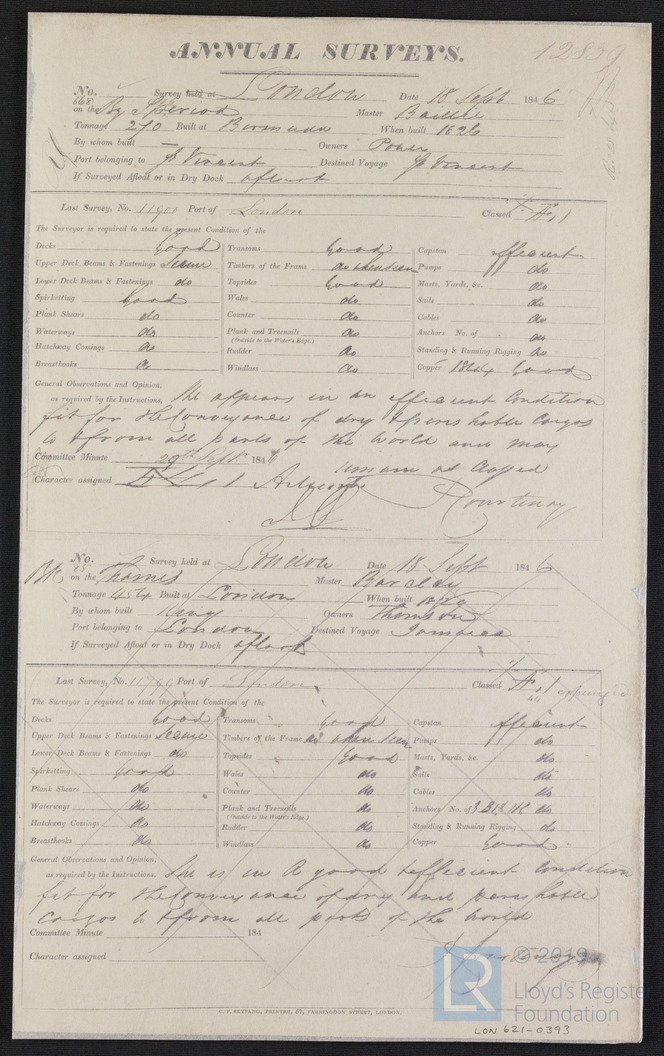 ANNUAL SURVEYS.
12839
No. Survey held at London Date 18 Sept 1846
668 on the Master
Tonnage 270 Built at Bermuda When built 1826
By whom built — Owners Power
Port belonging to St Vincent Destined Voyage St Vincent
If Surveyed Afloat or in Dry Dock afloat
Last Survey, No. 11901 Port of London Classed
The Surveyor is required to state the present Condition of the
Decks Good Transoms Good Capstan efficient
Upper Deck Beams & Fastenings Secure Timbers of the Frame as when seen Pumps do
Lower Deck Beams & Fastenings do Topsides Good Masts, Yards, &c. do
Spirketting Good Wales do Sails do
Plank Shears do Counter do Cables do
Waterways do Plank and Treenails do Anchors No. of do
(Outside to the Water's Edge.)
Hatchway Comings do Rudder do Standing & Running Rigging do
Breasthooks do Windlass do Copper 1844 Good
General Observations and Opinion,
as required by the Instructions, She appears in an efficient Condition
fit for the Conveyance of dry & perishable Cargos
to & from all parts of the World and may
Committee Minute 29th Sept 1846 remain as Classed
Character assigned Courtenay
No. 25 Survey held at London Date 18 Sept 1846
on the Thames Master Barclay
Tonnage 454 Built at London When built
By whom built King Owners Thomson
Port belonging to London Destined Voyage Jamaica
If Surveyed Afloat or in Dry Dock afloat
Last Survey, No. 11799 Port of London Classed
expunged
The Surveyor is required to state the present Condition of the
Decks Good Transoms Good Capstan efficient
Upper Deck Beams & Fastenings Secure Timbers of the Frame as when seen Pumps do
Lower Deck Beams & Fastenings do Topsides Good Masts, Yards, &c. do
Spirketting Good Wales do Sails do
Plank Shears do Counter do Cables do
Waterways do Plank and Treenails do Anchors No. of do
(Outside to the Water's Edge.)
Hatchway Comings do Rudder do Standing & Running Rigging do
Breasthooks do Windlass do Copper Good
General Observations and Opinion,
as required by the Instructions, She is in a good & efficient Condition
fit for the Conveyance of dry and perishable
Cargos to & from all parts of the World
Committee Minute 184
Character assigned
G. F. SEYFANG, PRINTER, 57, FARRINGDON STREET, LONDON.
© 2019
LR
Lloyd's Register
Foundation
LON 621-0393